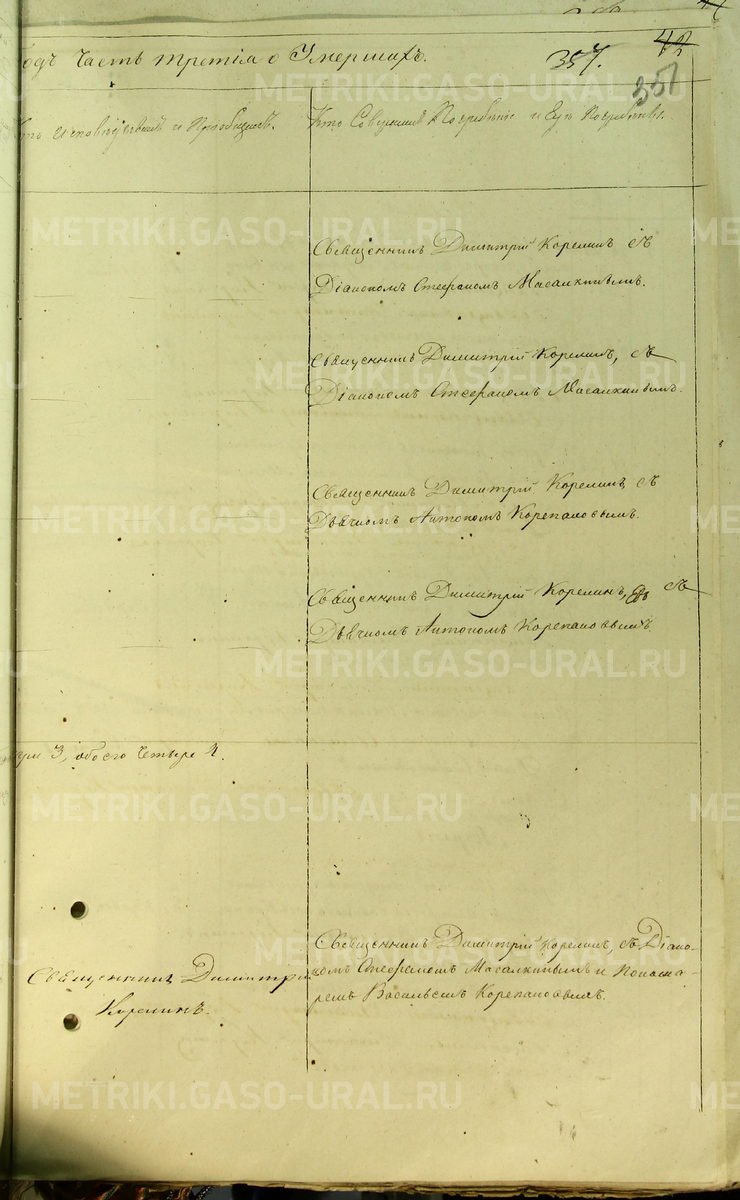 одъ Часть третія о Умершихъ.
357.
42
357
Кто исповѣдывалъ и Пріобщалъ.
Кто Совершалъ Погребеніе и Гдѣ Погребены.
Священникъ Димитрій Корелинъ съ
Діакономъ Стефаномъ Масалкинымъ.
Священникъ Димитрій Корелинъ, съ
Діакономъ Стефаномъ Масалкинымъ.
Священникъ Димитрій Корелинъ, съ
Дьячкомъ Антономъ Корепановымъ.
Священникъ Димитрій Корелинъ, съ
Дьячкомъ Антономъ Корепановымъ
3, обоего Четыре 4.
Священникъ Димитрій Корелинъ, съ Діако-
номъ Стефаномъ Масалкинымъ и Понома-
ремъ Васильемъ Корепановымъ.
Священникъ Димитрій
Корелинъ.
METRIKI.GASO-URAL.RU